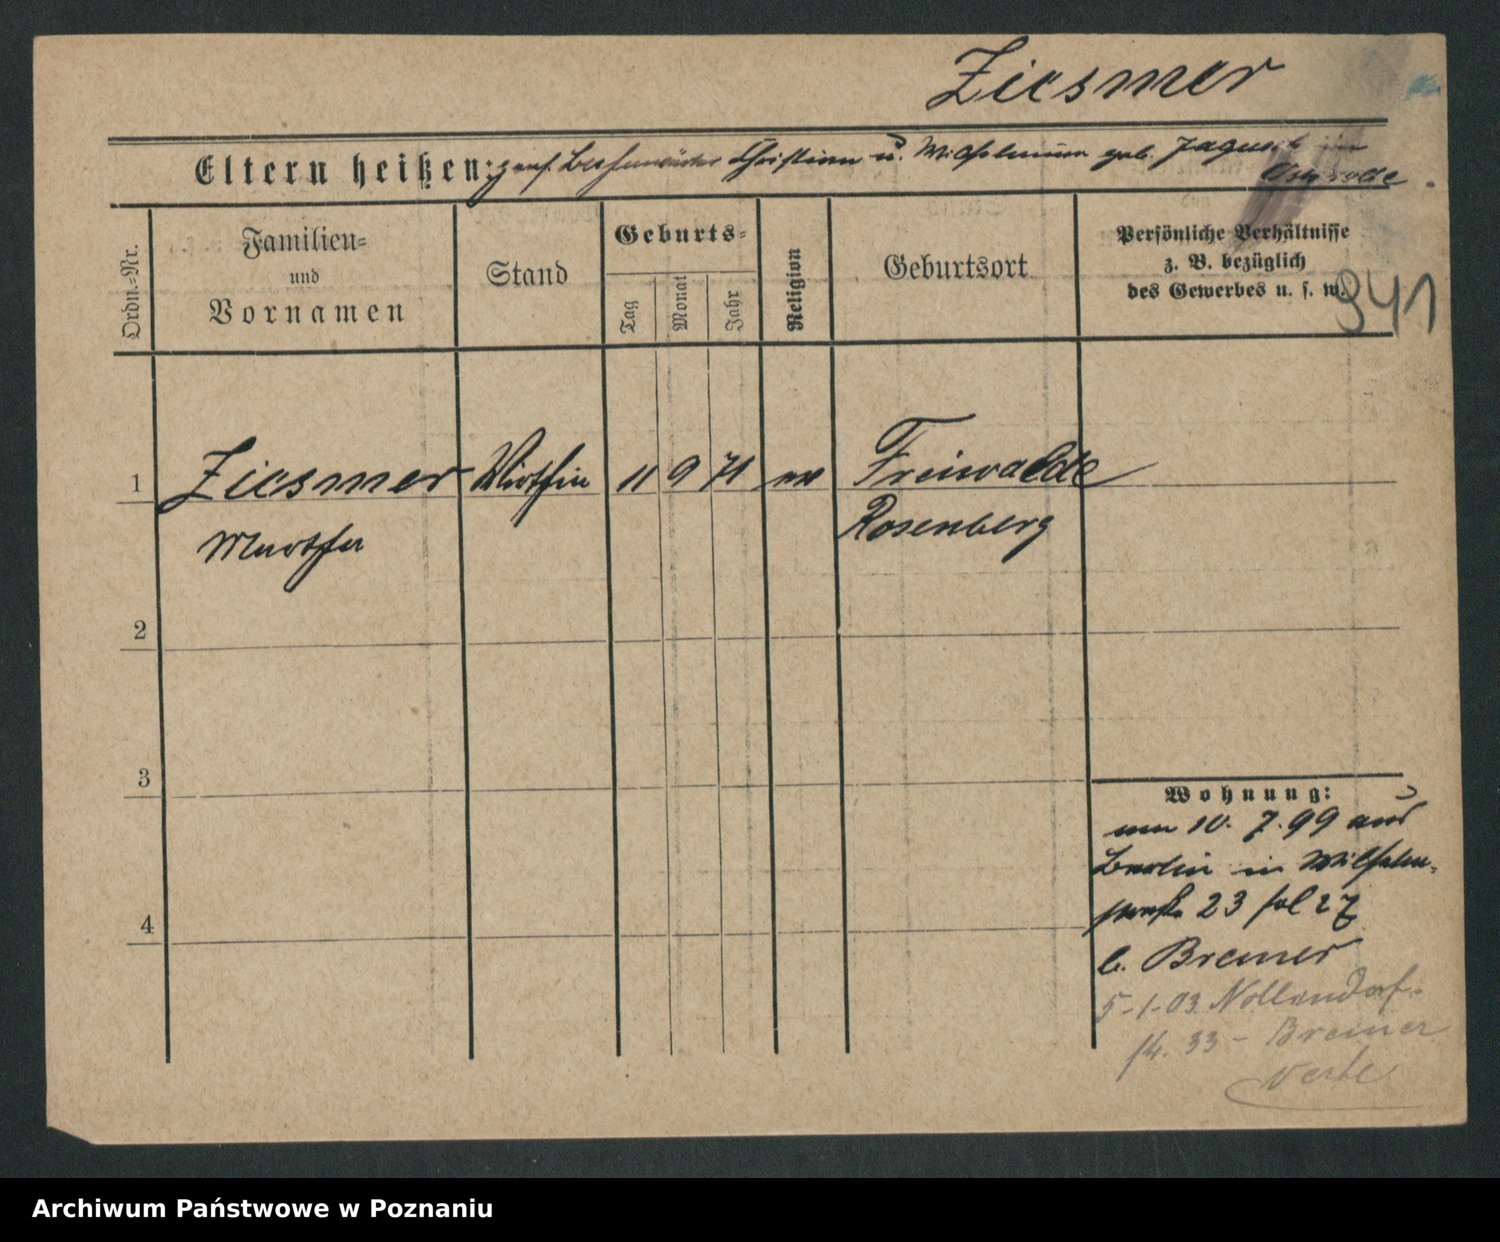 Ziesmer
Eltern heißen: Christian u. Wilhelmine geb. in
Osterode
Ordn.=Nr.
Familien=
und
Vornamen
Stand
Geburts=
Tag
Monat
Jahr
Religion
Geburtsort
Persönliche Verhältnisse
z. B. bezüglich
des Gewerbes u. s. w.
941
1 Ziesmer Wirthin 11 9 71 ev Freiwalde
Martha Rosenberg
2
3
4
Wohnung:
am 10. 7. 99 aus
Berlin in Wilhelm-
straße 23 fol 27
b. Bremer
5-1-03 Nollendorf-
f4. 33 - Bremer
Archiwum Państwowe w Poznaniu